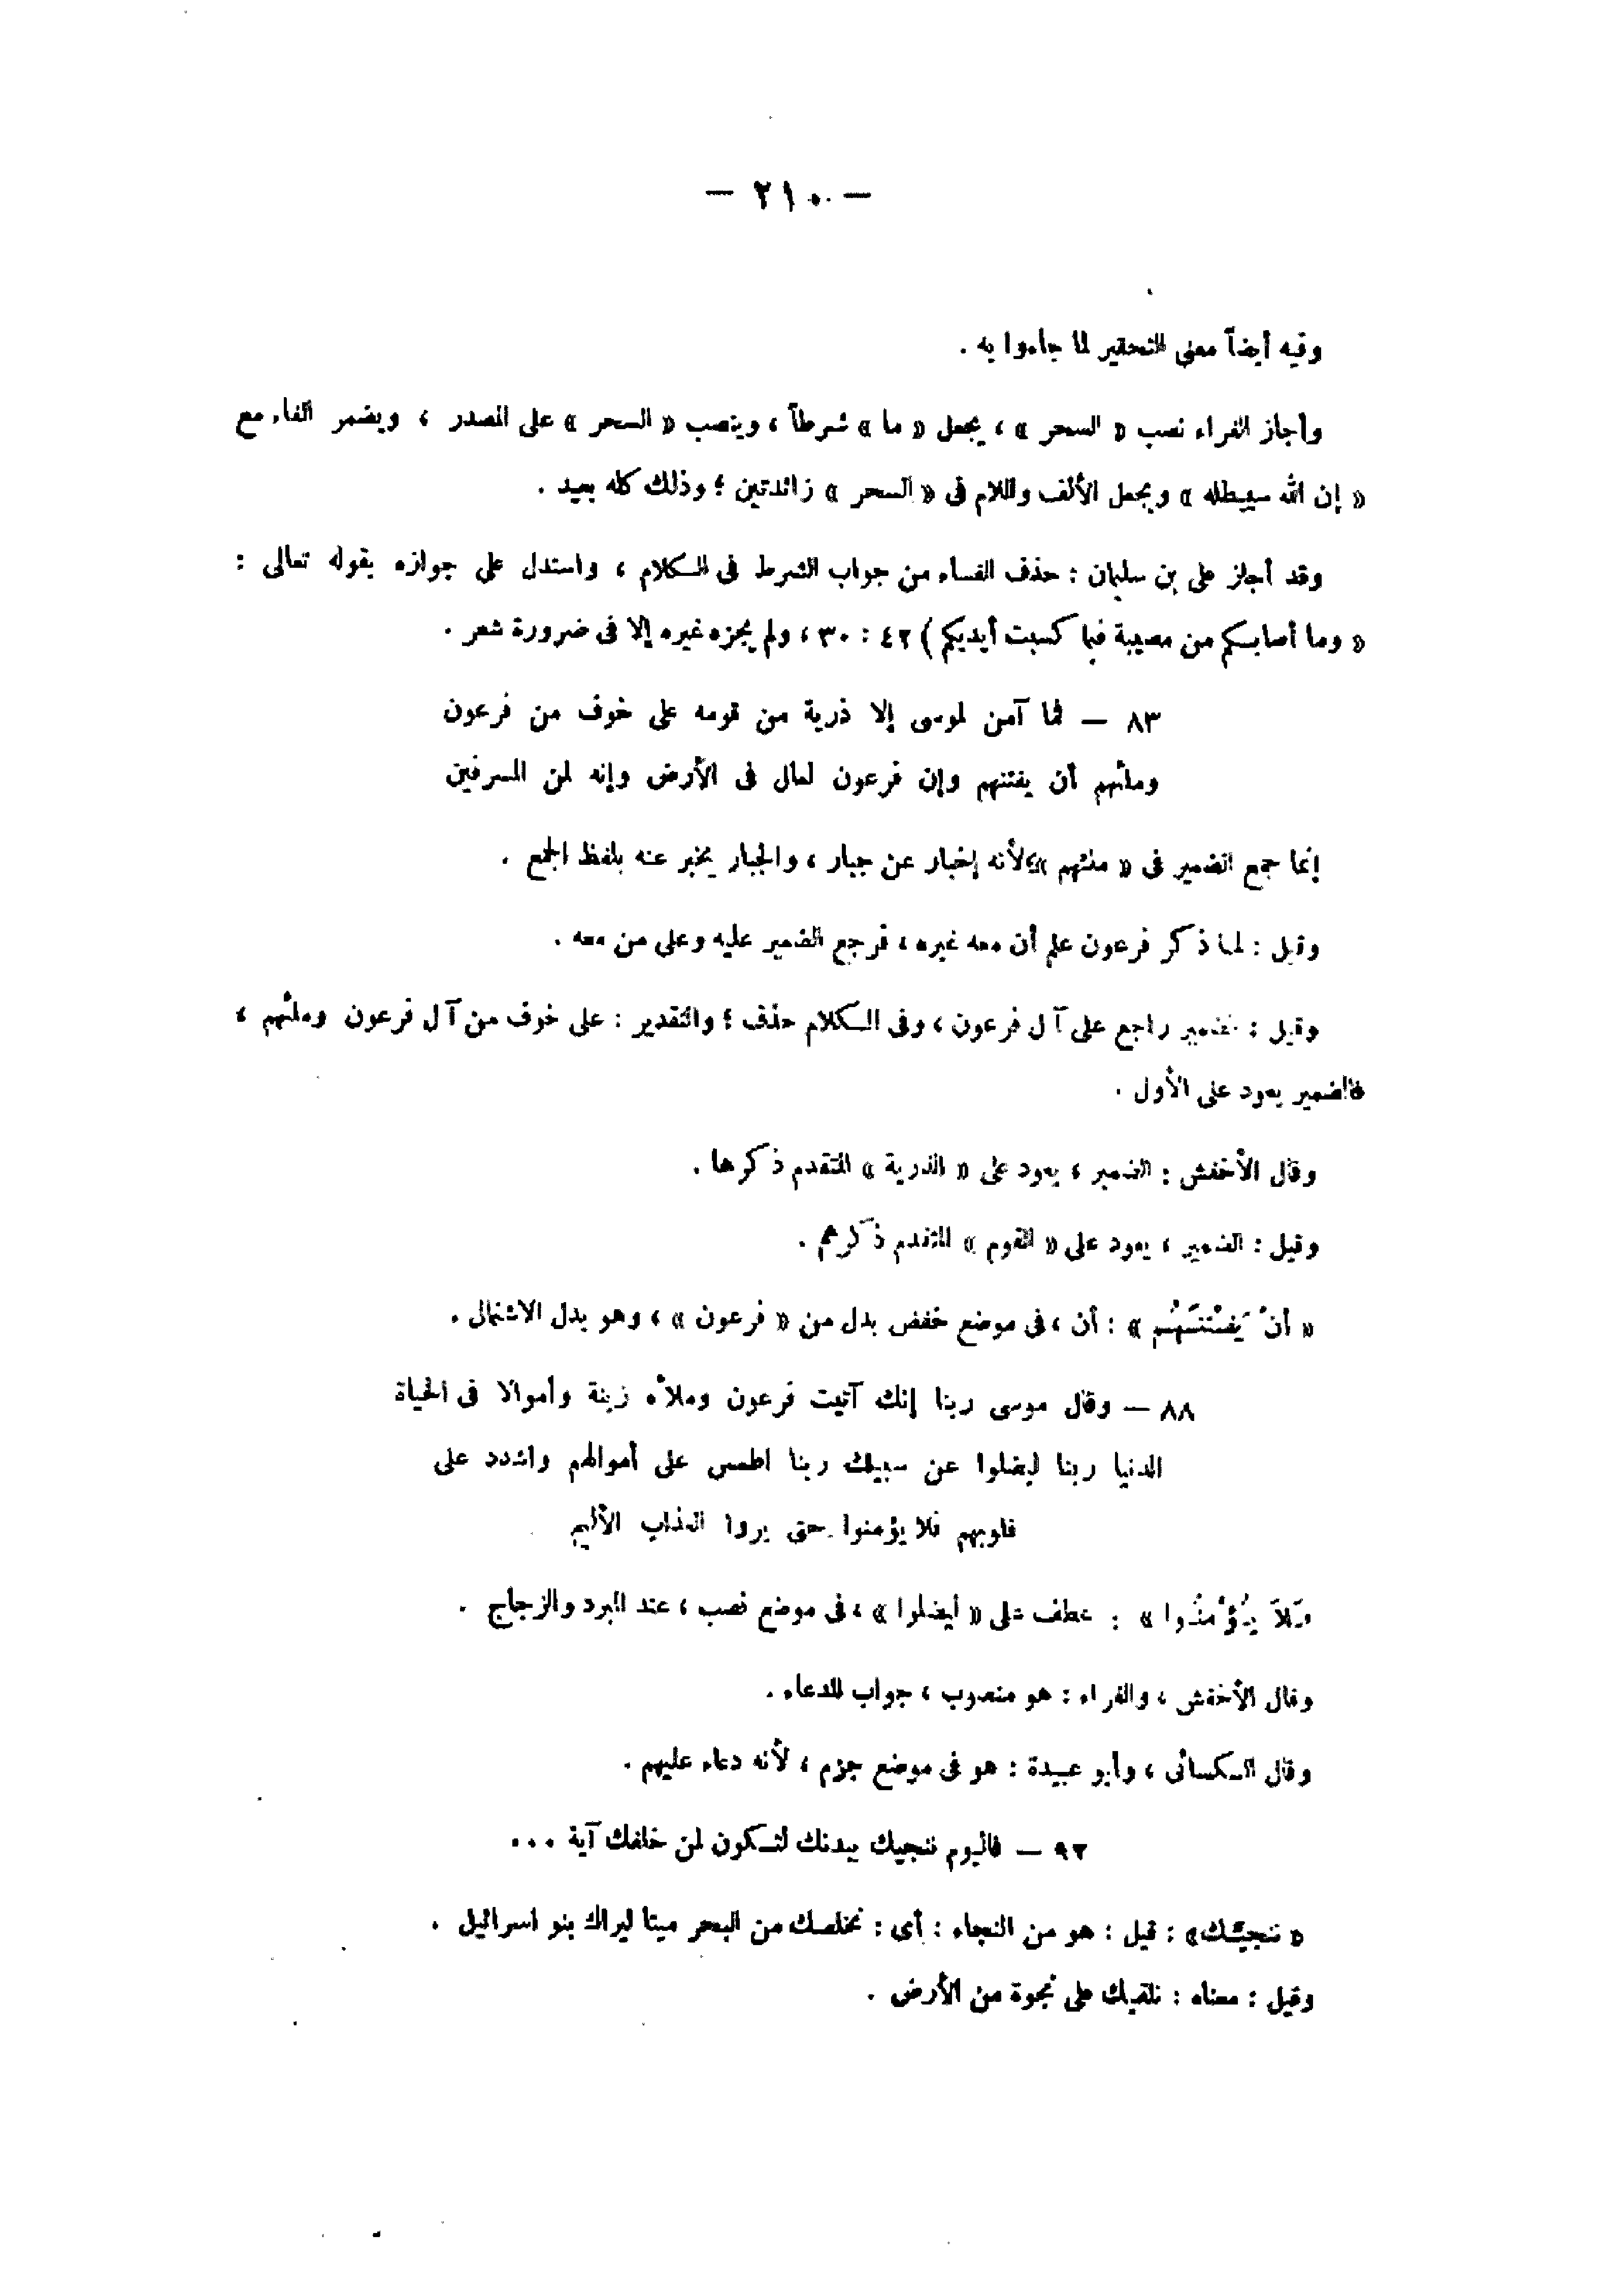 — ٢١٠ —
وفيه أيضاً معنى التحقير لما جاءوا به .
وأجاز الفراء نصب « السحر » ، يجعل « ما » شرطاً ، وينصب « السحر » على المصدر ، ويضمر الفاء مع
« إن الله سيبطله » ويجعل الألف واللام فى « السحر » زائدتين ؛ وذلك كله بعيد .
وقد أجاز على بن سليمان : حذف الفاء من جواب الشرط فى الكلام ، واستدل على جوازه بقوله تعالى :
« وما أصابكم من مصيبة فبما كسبت أيديكم ) ٤٢ : ٣٠ ، ولم يجزه غيره إلا فى ضرورة شعر .
٨٣ — فما آمن لموسى إلا ذرية من قومه على خوف من فرعون
وملئهم أن يفتنهم وإن فرعون لعال فى الأرض وإنه لمن المسرفين
إنما جمع الضمير فى « ملئهم » لأنه إخبار عن جبار ، والجبار يخبر عنه بلفظ الجمع .
وقيل : لما ذكر فرعون علم أن معه غيره ، فرجع الضمير عليه وعلى من معه .
وقيل : الضمير راجع على آل فرعون ، وفى الكلام حذف ؛ والتقدير : على خوف من آل فرعون وملئهم ،
فالضمير يعود على الأول .
وقال الأخفش : الضمير ، يعود على « الذرية » المتقدم ذكرها .
وقيل : الضمير ، يعود على « القوم » المتقدم ذكرهم .
« أنْ يَفْتنَهُم » : أن ، فى موضع خفض بدل من « فرعون » ، وهو بدل الاشتمال .
٨٨ — وقال موسى ربنا إنك آتيت فرعون وملأه زينة وأموالا فى الحياة
الدنيا ربنا ليضلوا عن سبيلك ربنا اطمس على أموالهم واشدد على
قلوبهم فلا يؤمنوا حتى يروا العذاب الأليم
فَلاَ يُؤْمنُوا » : عطف على « ليضلوا » ، فى موضع نصب ، عند المبرد والزجاج .
وقال الأخفش ، والفراء : هو منصوب ، جواب للدعاء .
وقال الكسائى ، وأبو عبيدة : هو فى موضع جزم ، لأنه دعاء عليهم .
٩٢ — فاليوم ننجيك ببدنك لتكون لمن خلفك آية . . .
« ننجيك » : قيل : هو من النجاء : أى : نخلصك من البحر ميتا ليراك بنو اسرائيل .
وقيل : معناه : نلقيك على نجوة من الأرض .